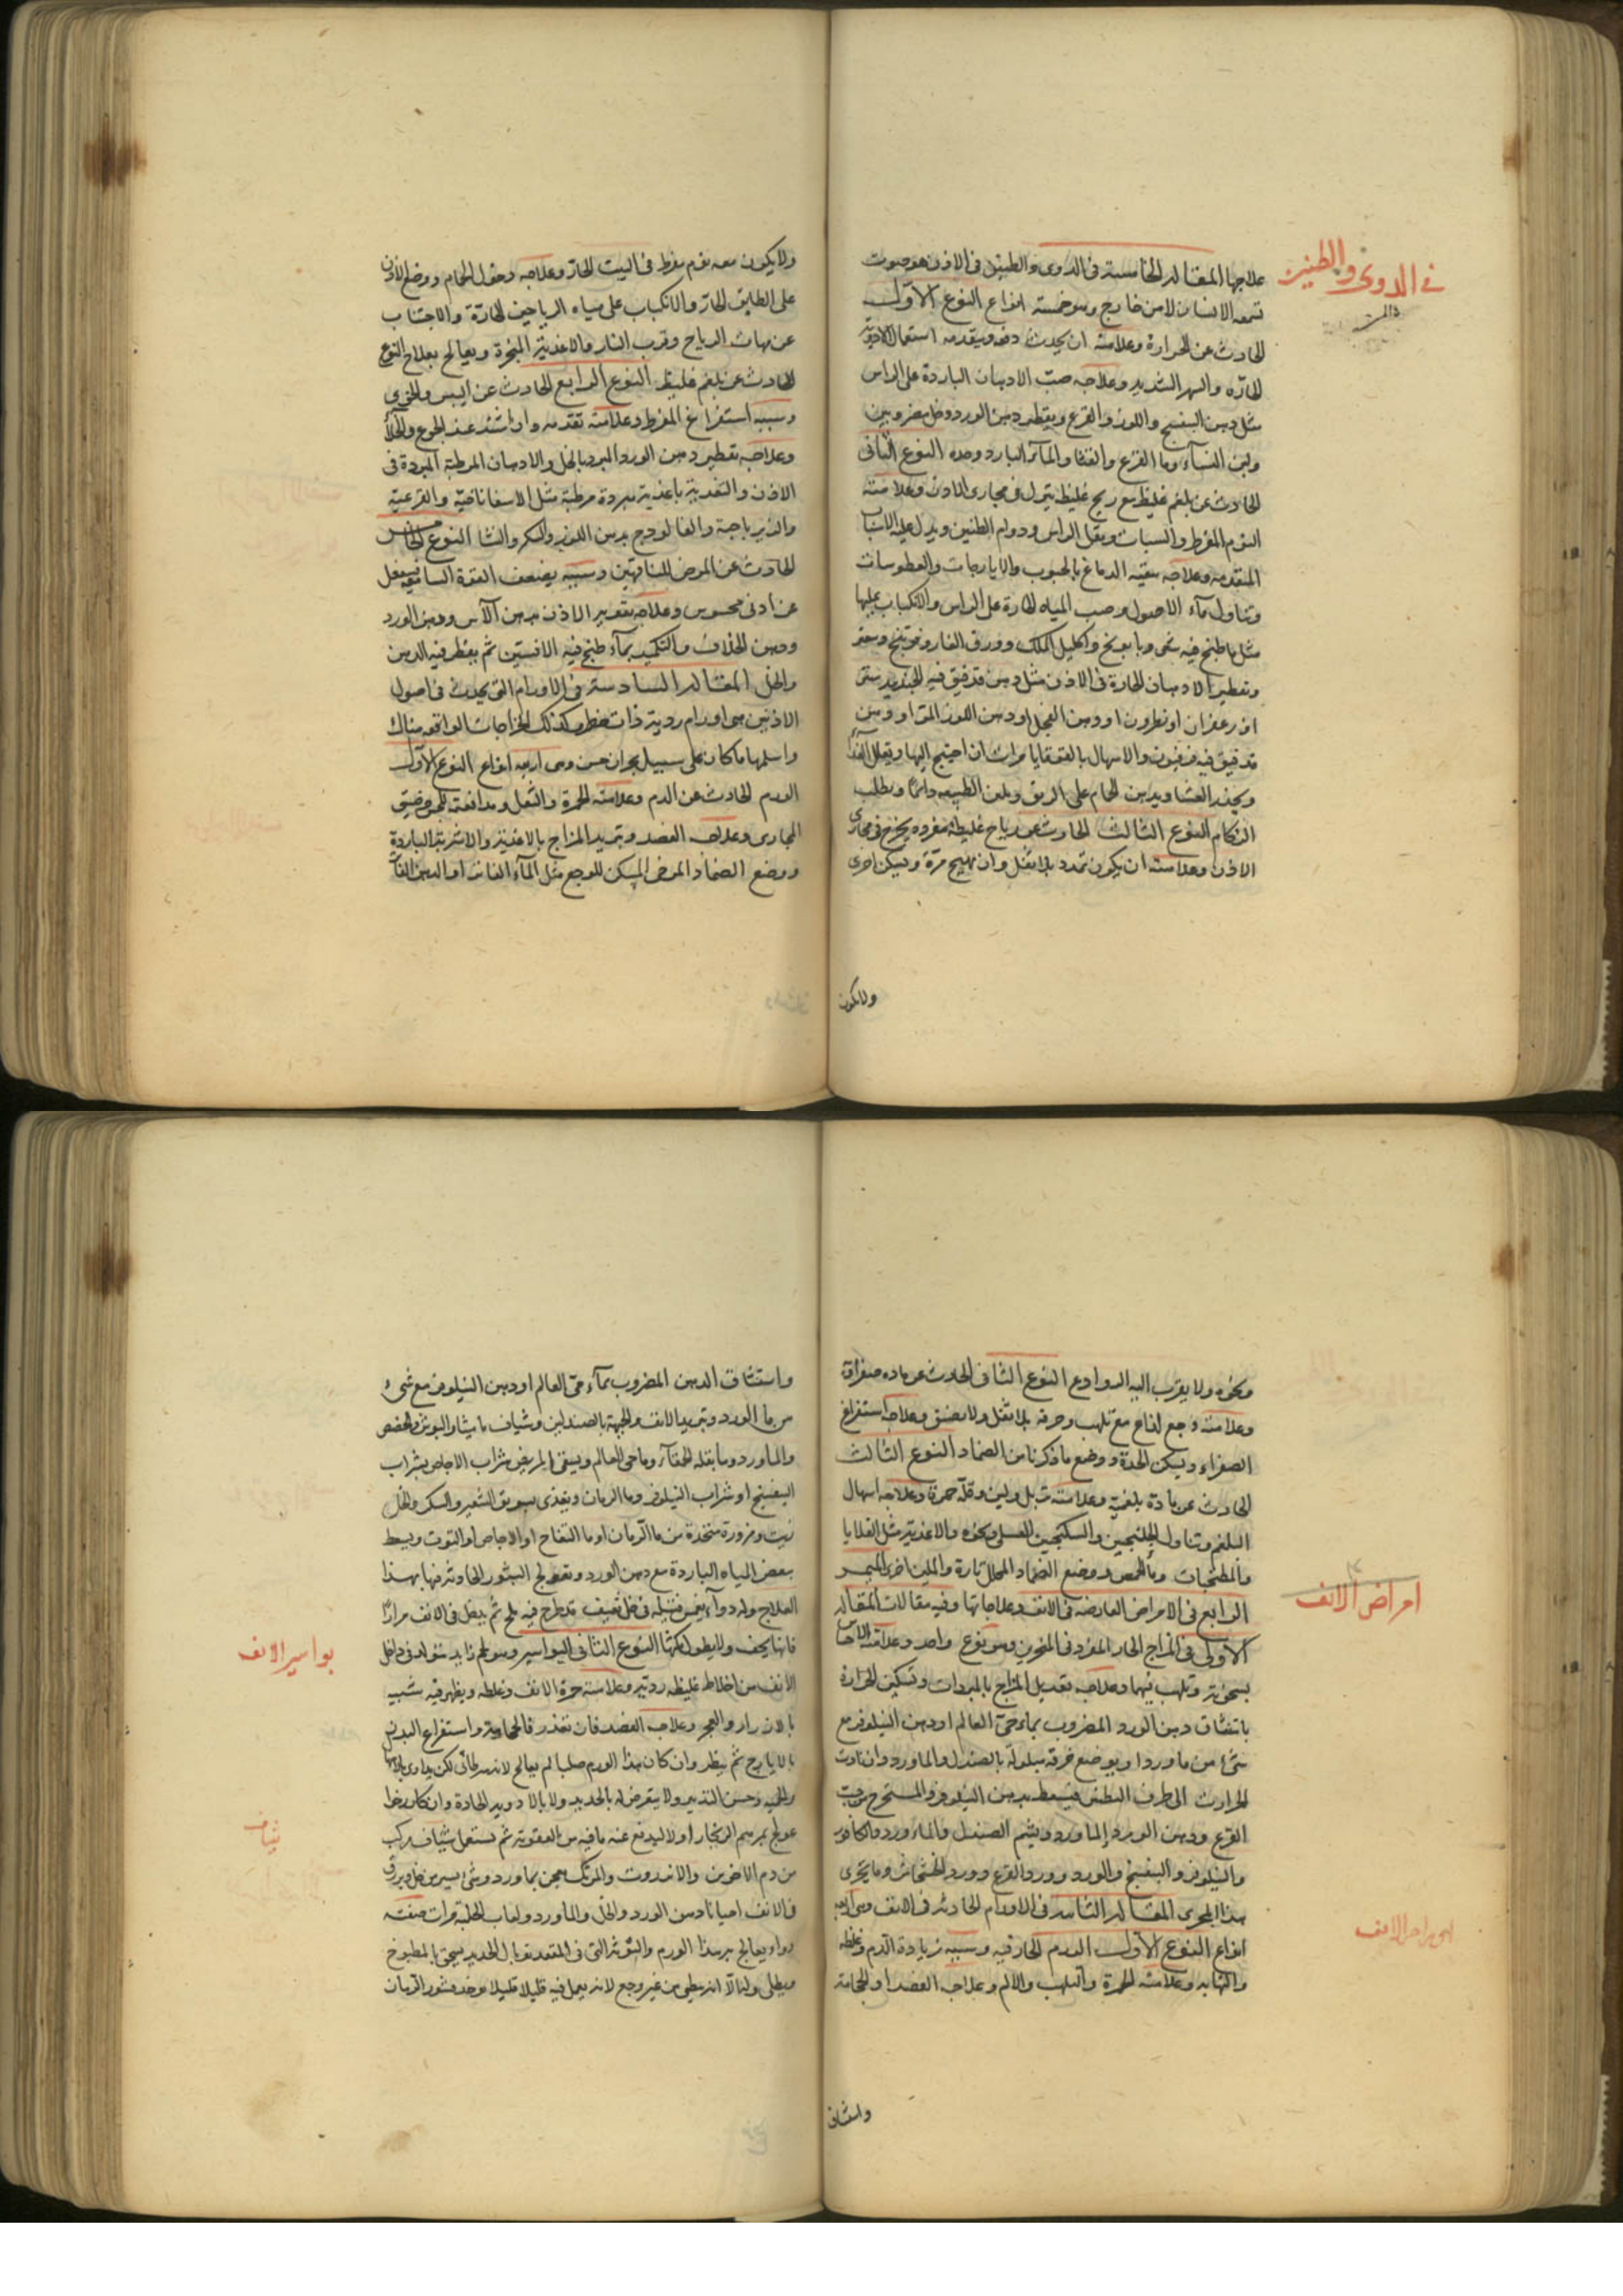 في الدوى والطنين
علاجها المقالة الخامسة فى الدوى والطنين فى الاذن هو صوت
تسمعه الانسان لا من خارج وهو خمسة انواع النوع الاول
الحادث عن الحرارة وعلامته ان يحدث دفعة ويتقدمه استعمال الادوية
الحارة والسهر الشديد وعلاجه صب الادهان الباردة على الراس
مثل دهن البنفسج واللوز والقرع ويقطر دهن الورد وخل مضروبين
ولبن النساء وما القرع والقثا والمآء البارد وحده النوع الثانى
الحادث عن بلغم غليظ مع ريح غليظ يتحرك فى مجارى الاذن وعلامته
النوم المفرط والسبات وثقل الراس ودوام الطنين ويدل عليه الاسباب
المتقدمة وعلاجه تنقية الدماغ بالحبوب والايارجات والعطوسات
وتناول مآء الاصول وصب المياه الحارة على الراس والانكباب عليها
مثل ما طبخ فيه شيح وبابونج واكليل الملك وورق الغار وفوتنج وصعتر
وتقطير الادهان الحارة فى الاذن مثل دهن قد فتق فيه الجندبيدستر
او زعفران او نطرون او دهن الفجل او دهن اللوز المر او دهن
قد فتق فيه فرفيون والاسهال بالقوقايا مرات ان احتيج اليها ويقلل الغذآء
ويحذر العشا ويدمن الحمام على الريق ويلين الطبيعة دائما ويطلب
الزكام النوع الثالث الحادث عن رياح غليظة مفردة يخرج فى مجارى
الاذن وعلامته ان يكون تمدد بلا ثقل وان يهيج مرة ويسكن اخرى
ولا يكون
ولا يكون معه نوم مفرط فى البيت الحار وعلاجه دخول الحمام ووضع الاذن
على الطابق الحار والانكباب على مياه الرياحين الحارة والاجتناب
عن مهاب الرياح وقرب النار والاغذية المبخرة ويعالج بعلاج النوع
الحادث عن بلغم غليظ النوع الرابع الحادث عن اليبس والخوى
وسببه استفراغ المفرط وعلامته تقدمه واذا اشتد عند الجوع والخلآء
وعلاجه تقطير دهن الورد المبرد بالخل والادهان المرطبة المبردة فى
الاذن والتغذية باغذية مبردة مرطبة مثل الاسفاناخية والقرعية
والزيرباجة والفالوذج بدهن اللوز والسكر والنشا النوع الخامس
الحادث عن المرض للناقهين وسببه بضعف القوة السامعة فينفعل
عن ادنى محسوس وعلاجه تقوية الاذن بدهن الآس ودهن الورد
ودهن الخلاف والتكميد بمآء طبخ فيه الافسنتين ثم يقطر فيه الدهن
والخل المقالة السادسة فى الاورام التى يحدث فى اصول
الاذنين هى اورام ردية ذات خطر وكذلك الخراجات الواقعة هناك
واسلمها ما كان على سبيل بحران حسن وهى اربعة انواع النوع الاول
الورم الحادث عن الدم وعلامته الحمرة والثقل ومدافعة لجس وضيق
المجارى وعلاجه الفصد وتبريد المزاج بالاغذية والاشربة الباردة
ووضع الضماد المرخى المسكن للوجع مثل المآء الفاتر او الدهن الفاتر
ونحوه ولا يقرب اليه الروادع النوع الثانى الحادث عن مادة صفراوية
وعلامته وجع لذاع مع تلهب وحرقة بلا ثقل ولا ضيق وعلاجه استفراغ
الصفراء وتسكين الحدة ووضع ما ذكرنا من الضماد النوع الثالث
الحادث عن مادة بلغمية وعلامته ترهل ولين وقلة حمرة وعلاجه اسهال
البلغم وتناول الجلنجبين والسكنجبين العسلى ونحوه والاغذية مثل القلايا
والمطنجات وماء الحمص ووضع الضماد المحلل تارة والملين اخرى
امراض الانف
الرابع فى الامراض العارضة فى الانف وعلاجاتها وفيه مقالات المقالة
الاولى فى المزاج الحار المفرد فى المنخرين وهو نوع واحد وعلامته الاحساس
بسخونة وتلهب فيهما وعلاجه تعديل المزاج بالمبردات وتسكين الحرارة
باستنشاق دهن الورد المضروب بماء حى العالم او دهن النيلوفر مع
شىء من ماورد او يوضع خرقة مبلولة بالصندل والماورد وان تادت
الحرارة الى طرف البطن فيسعط بدهن النيلوفر والمستخرج من حب
القرع ودهن الورد والماورد ويشم الصندل والماورد والكافور
والنيلوفر والبنفسج والورد وورد القرع وورد الخشخاش وما يجرى
هذا المجرى المقالة الثانية فى الاورام الحادثة فى الانف وهى اربعة
اورام الانف
انواع النوع الاول الورم الحار فيه وسببه زيادة الدم وغلظه
والتهابه وعلامته الحمرة والتلهب والالم وعلاجه الفصد او الحجامة
واستنشاق
واستنشاق الدهن المضروب بمآء حى العالم او دهن النيلوفر مع شىء
من ما الورد وتبريد الانف والجبهة بالصندلين وشياف ماميثا والبوش والحضض
والماورد وما بقلة الحمقآء وما حى العالم ويسقى المريض شراب الاجاص بشراب
البنفسج او شراب النيلوفر وما الرمان ويغذى بسويق الشعير والسكر والخل
زيت ومزورة متخذة من ما الرمان او ما التفاح او الاجاص او التوت ويسعط
بعض المياه الباردة مع دهن الورد وتعالج البثور الحادثة فيها بهذا
العلاج وله دوآء يغمس فتيلة فى خل ثقيف قد طرح فيه ملح ثم يدخل فى الانف مرارا
فانها يجف ولا يطول مكثها النوع الثانى البواسير وهو لحم زايد يتولد فى داخل
بواسير الانف
الانف من اخلاط غليظة ردية وعلامته حمرة الانف وغلظه ويظهر فيه شبيه
بالازرار والعجر وعلاجه الفصد فان تعذر فالحجامة واستفراغ البدن
بالايارج ثم ينظر وان كان هذا الورم صلبا لم يعالج لانه سرطانى لكن يدارى بالاسهال
والحمية وحسن التدبير ولا يتعرض له بالحديد ولا بالادوية الحادة وان كان رخوا
عولج بمرهم الزنجار اولا ليدفع عنه ما فيه من العفونة ثم يستعمل شياف مركب
شياف
من دم الاخوين والانزروت والمرتك يعجن بماورد وشىء يسير من خل ويرقق
فى الانف احيانا دهن الورد والخل والماورد ولعاب الحلبة مرات صفة
دوآء يعالج به هذا الورم والبثور التى فى المقعدة يوخذ الحديد يسحق بالمطبوخ
ويطلى ولنا الا انه بطى من غير وجع لانه يعمل فيه قليلا قليلا يوخذ قشور الرمان